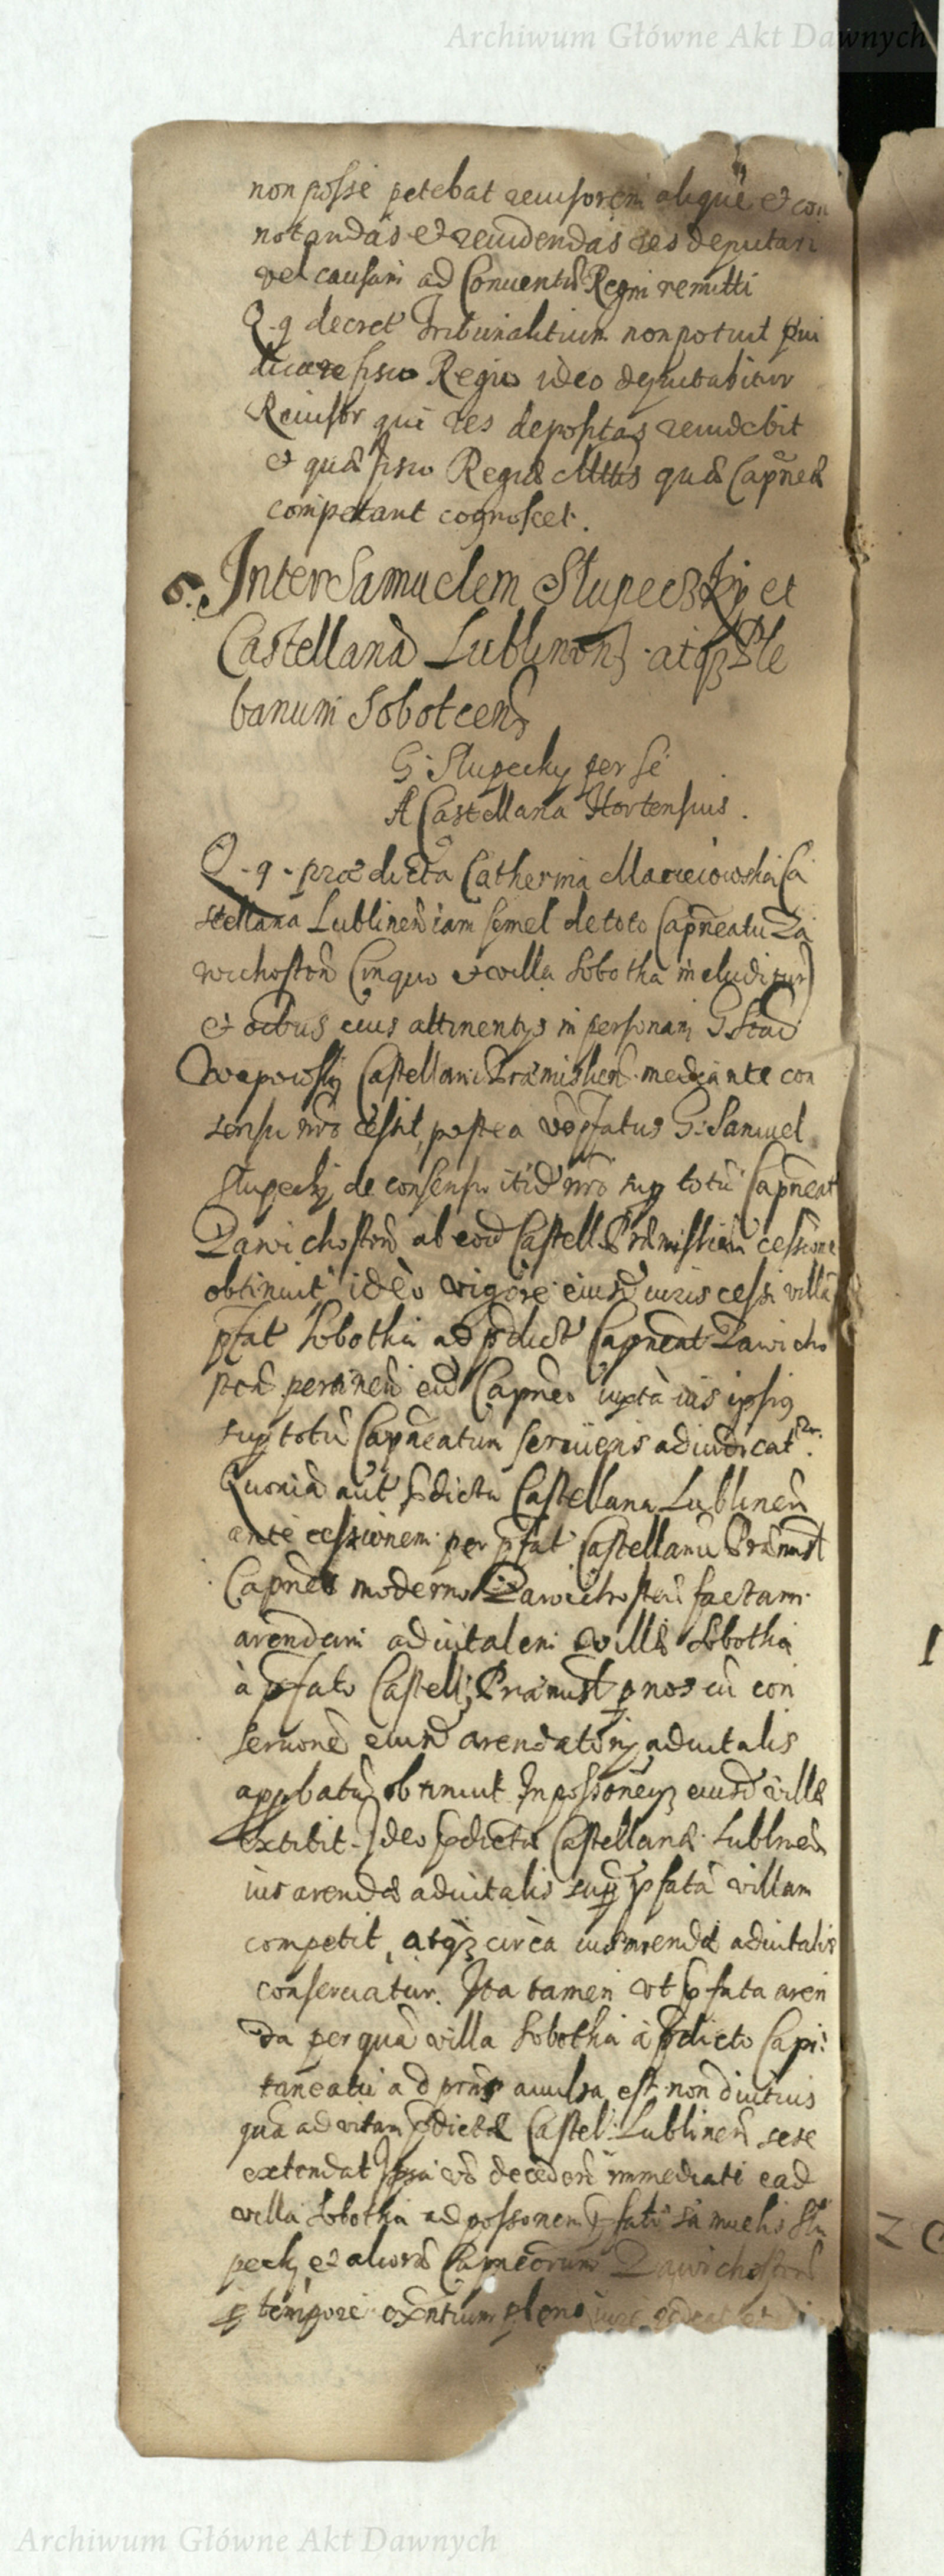 Archiwum Główne Akt Dawnych
non posse petebat reuisorem aliquē et con
notandas et reuidendas res deputari
vel causam ad Conuentū Regni remitti
Q. q decret Tribunalitium non potuit piui
dicare fisco Regio ideo deputabitur
Reuisor qui res depositas reuidebit
et quæ fisco Regiæ Mttis quæ Capneæ
competant cognoscet.
6. Inter Samuelem Slupeczky et
Castellanā Lublinen̄ atqʒ Ple
banum Sobotcen̄
G. Slupecky per se
A Castellana Hortensius.
Q. q. præ dicta Catherina Macieiowska Ca
stellana Lublinen̄ iam semel de toto Capneatu Za
wichosten̄ (in quo et villa Sobotha includitur)
et oībus eius attinentys in personam G. Stan̄
Wapowsky Castellani Præmislien̄ mediante con
sensu nr̄o cessit, postea vō pfatus G. Samuel
Slupecky de consensu itid̄ nr̄o sup totū Capneat
Zawichosten̄ ab eod̄ Castell. Præmislien̄ cessione
obtinuit ideo vigore eiusd̄ iuris cessi villa
pfat Sobotha ad pdict Capneat Zawicho
sten̄ pertinen̄ eid̄ Capneo iuxta ius ipsius
sup totū Capneatum seruiens adiudicat r.
Quoniā aut pdicta Castellana Lublinen̄
ante cessionem per pfat Castellanū Præmisl
Capneo moderno Zawichosten̄ factam
arendam aduitalem villæ Sobotha
à pfato Castell. Præmisl p nos cū con
seruone eiusd̄ arendatorÿ aduitalis
approbatā obtinuit In possoneqʒ eiusd̄ villæ
extitit. Ideo pdictæ Castellanæ Lublinen̄
ius arendæ aduitalis sup pfatā villam
competit, atqʒ circa ius arendæ aduitalis
conseruatur. Ita tamen vt pfata aren
da per quā villa Sobotha à pdicto Capi:
taneatu ad prn̄s auulsa est non diutius
quā ad vitam pdictæ Castel. Lublinen̄ sese
extendat Ipsa vō deceden̄ immediate ead̄
villa Sobotha ad possonem pfati Samuelis Slu
pecky et aliorū Capneorum Zawichosten̄
p tempore exn̄tium pleno iure redeat et
Archiwum Główne Akt Dawnych